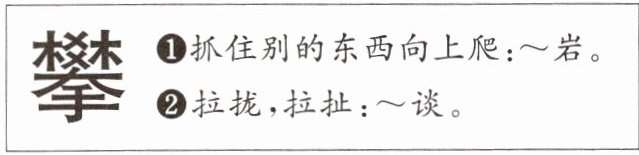 攀
❶抓住别的东西向上爬:～岩。
❷拉拢,拉扯:～谈。